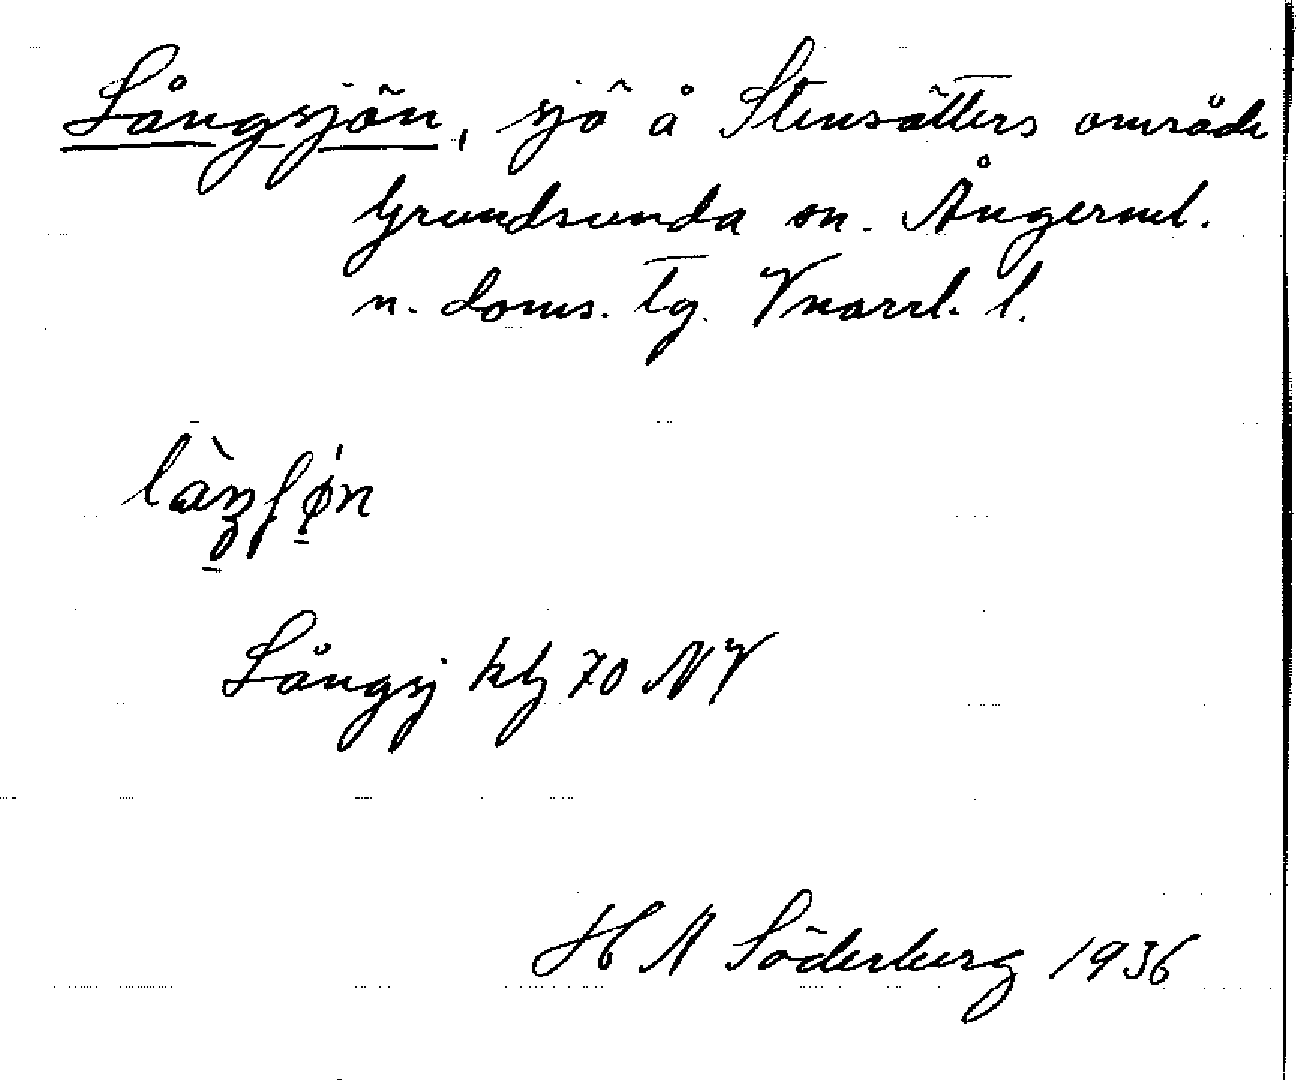 Långsjön, sjö å Stensätters område
Grundsunda sn. Ångerml.
n. doms. tg. Vnorrl. l.
Långsj ktg 70 NV
H N Söderberg 1936